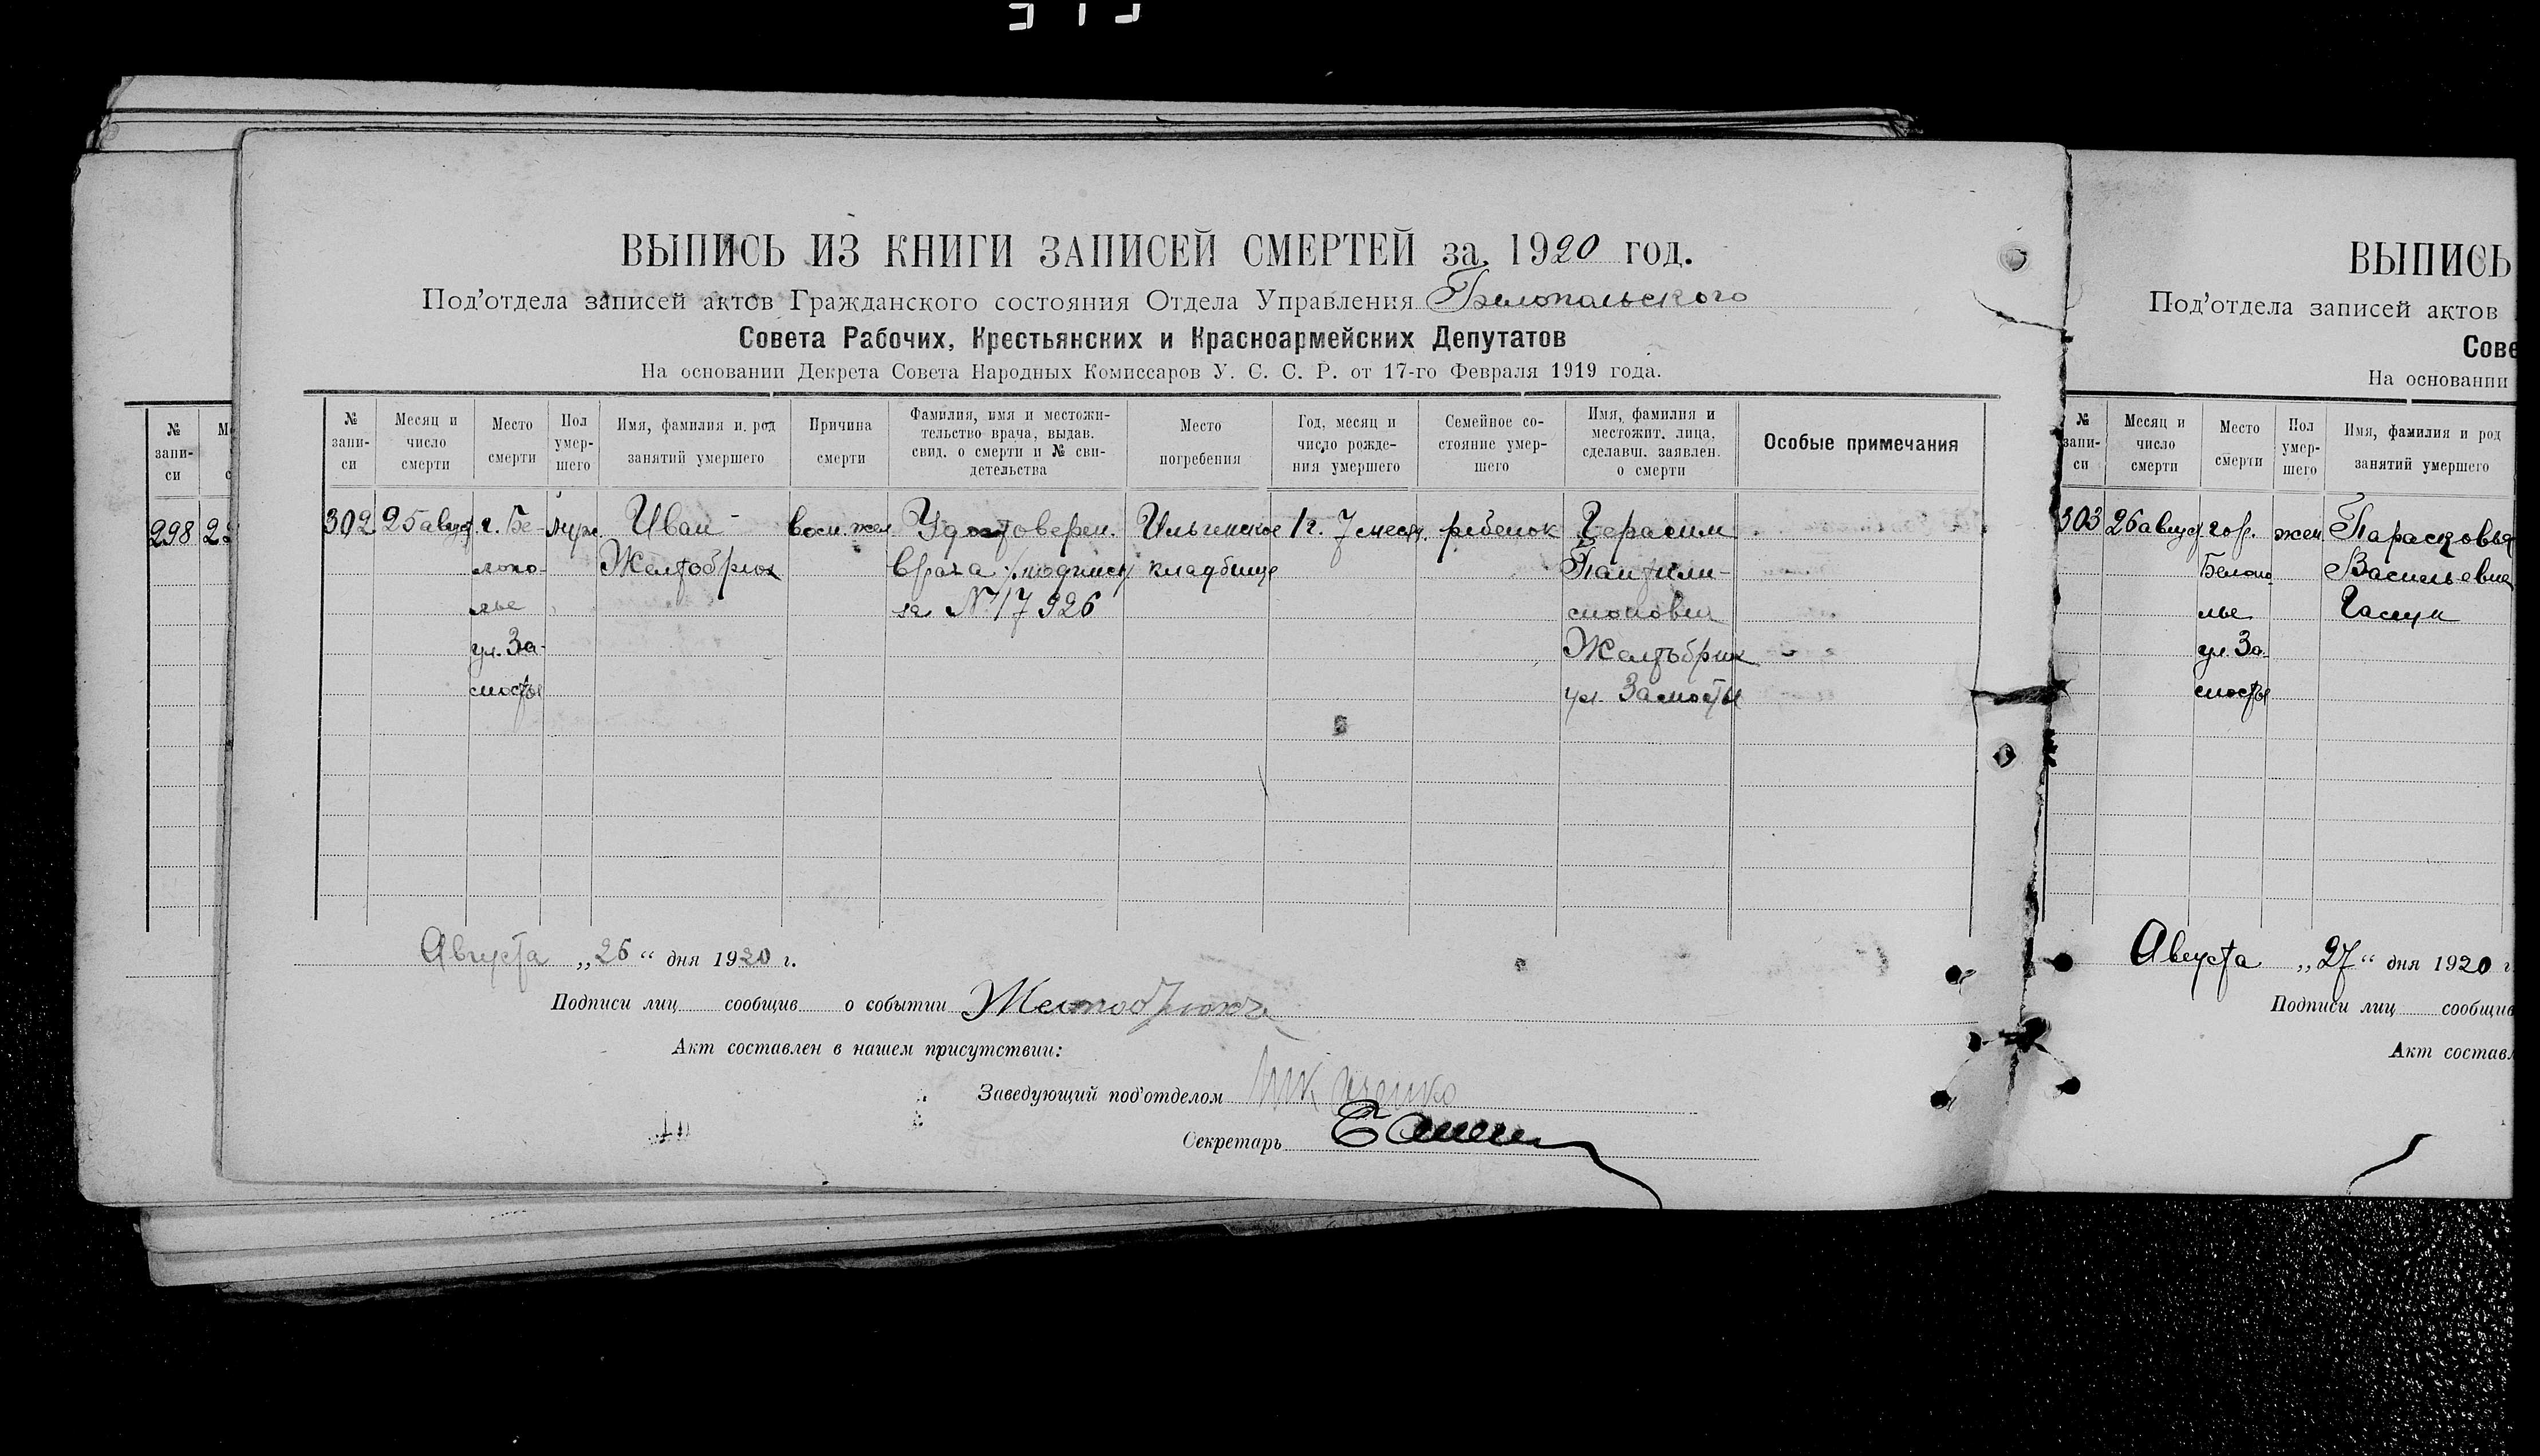 ВЫПИСЬ ИЗ КНИГИ ЗАПИСЕЙ СМЕРТЕЙ за 1920 год.
Под'отдела записей актов Гражданского состояния Отдела Управления Белопольского
Совета Рабочих, Крестьянских и Красноармейских Депутатов
На основании Декрета Совета Народных Комиссаров У. С. С. Р. от 17-го Февраля 1919 года.
№ запи-
си
Месяц и
число
смерти
Место
смерти
Пол
умер-
шего
Имя, фамилия и род
занятий умершего
Причина
смерти
Фамилия, имя и местожи-
тельство врача, выдав.
свид. о смерти и № сви-
детельства
Место
погребения
Год, месяц и
число рожде-
ния умершего
Семейное со-
стояние умер-
шего
Имя, фамилия и
местожит. лица,
сделавш. заявлен.
о смерти
Особые примечания
302
25 август
г. Бе-
лопо-
лье
ул. За-
мостья
муж
Иван
Желтобрюх
восп. жел
Удостоверен.
врача
за № 17926
Ильинское
кладбище
1 г. 7 месяц.
ребенок
Герасим
Желтобрюх
ул. Замостья
Августа „26“ дня 1920 г.
Подписи лиц сообщив о событии Желтобрюх
Акт составлен в нашем присутствии:
Заведующий под'отделом
Секретарь
№
запи-
си
298
ВЫПИСЬ
Под'отдела записей актов
Сове
На основании
№
запи-
си
Месяц и
число
смерти
Место
смерти
Пол
умер-
шего
Имя, фамилия и род
занятий умершего
303
26 август
гор.
Белопо-
лье
ул. За-
мостья
жен
Парасковья
Васильевна
Августа „27“ дня 1920 г
Подписи лиц сообщив
Акт составл